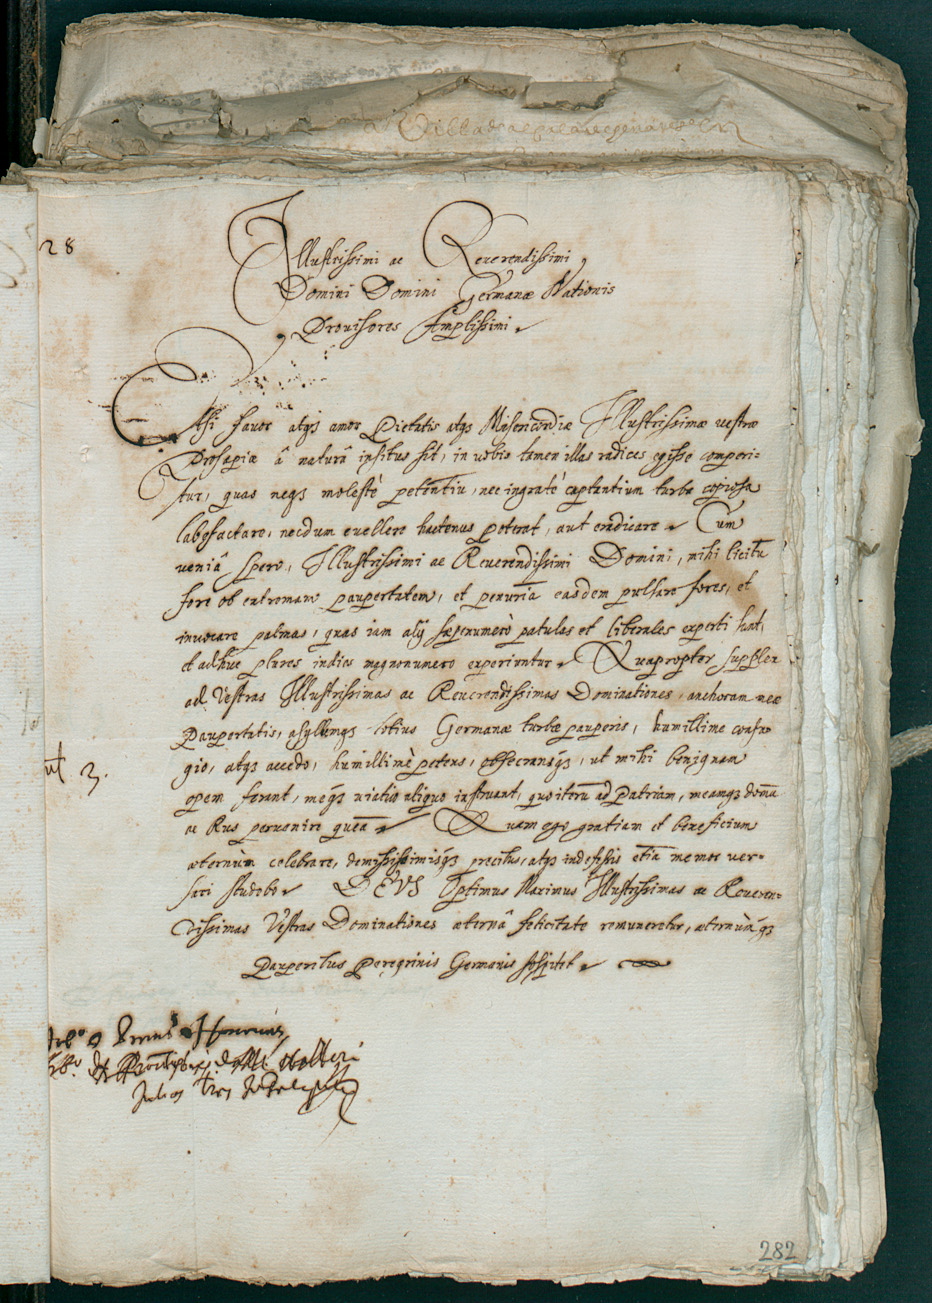 28
Illustrissimi ac Reverendissimi
Domini Domini Germanæ Nationis
Prouisores Amplissimi.
Etsi fauor atqs amor Pietatis atqs Misericordiæ Illustrissimæ vestræ
Prosapiæ â naturâ insitus sit, in vobis tamen illas radices egisse comperi-
tur, quas neqs molestè petentiũ, nec ingratè captantium turba copiosa
labefactare, necdum euellere hactenus poterat, aut eradicare. Cum
veniâ spero, Illustrissimi ac Reuerendissimi Domini, mihi licitũ
fore ob extremam paupertatem, et penuriã easdem pulsare fores, et
inuocare palmas, quas iam alij sæpenumerò patulas et liberales experti sunt,
et adhuc plures indies magnonumero experiuntur. Quapropter supplex
ad Vestras Illustrissimas ac Reuerendissimas Dominationes, anchoram meæ
Paupertatis, asylumqs totius Germanæ turbæ pauperis, humillime confu
gio, atqs accedo, humillimè petens, obsecransqs, ut mihi benignam
opem ferant, meqs viatico aliquo instruant, quo iterũ ad Patriam, meamqs domũ
ac Rus peruenire queã. Quam ego gratiam et beneficium
æternùm celebrare, demississimisqs precibus, atqs indefessis etiã memor ver-
sari studebo. DEVS Optimus Maximus Illustrissimas ac Reueren-
dissimas Vestras Dominationes æternâ felicitate remuneretur, æternùmqs
Pauperibus Peregrinis Germanis sospitet.
ut 3.
282